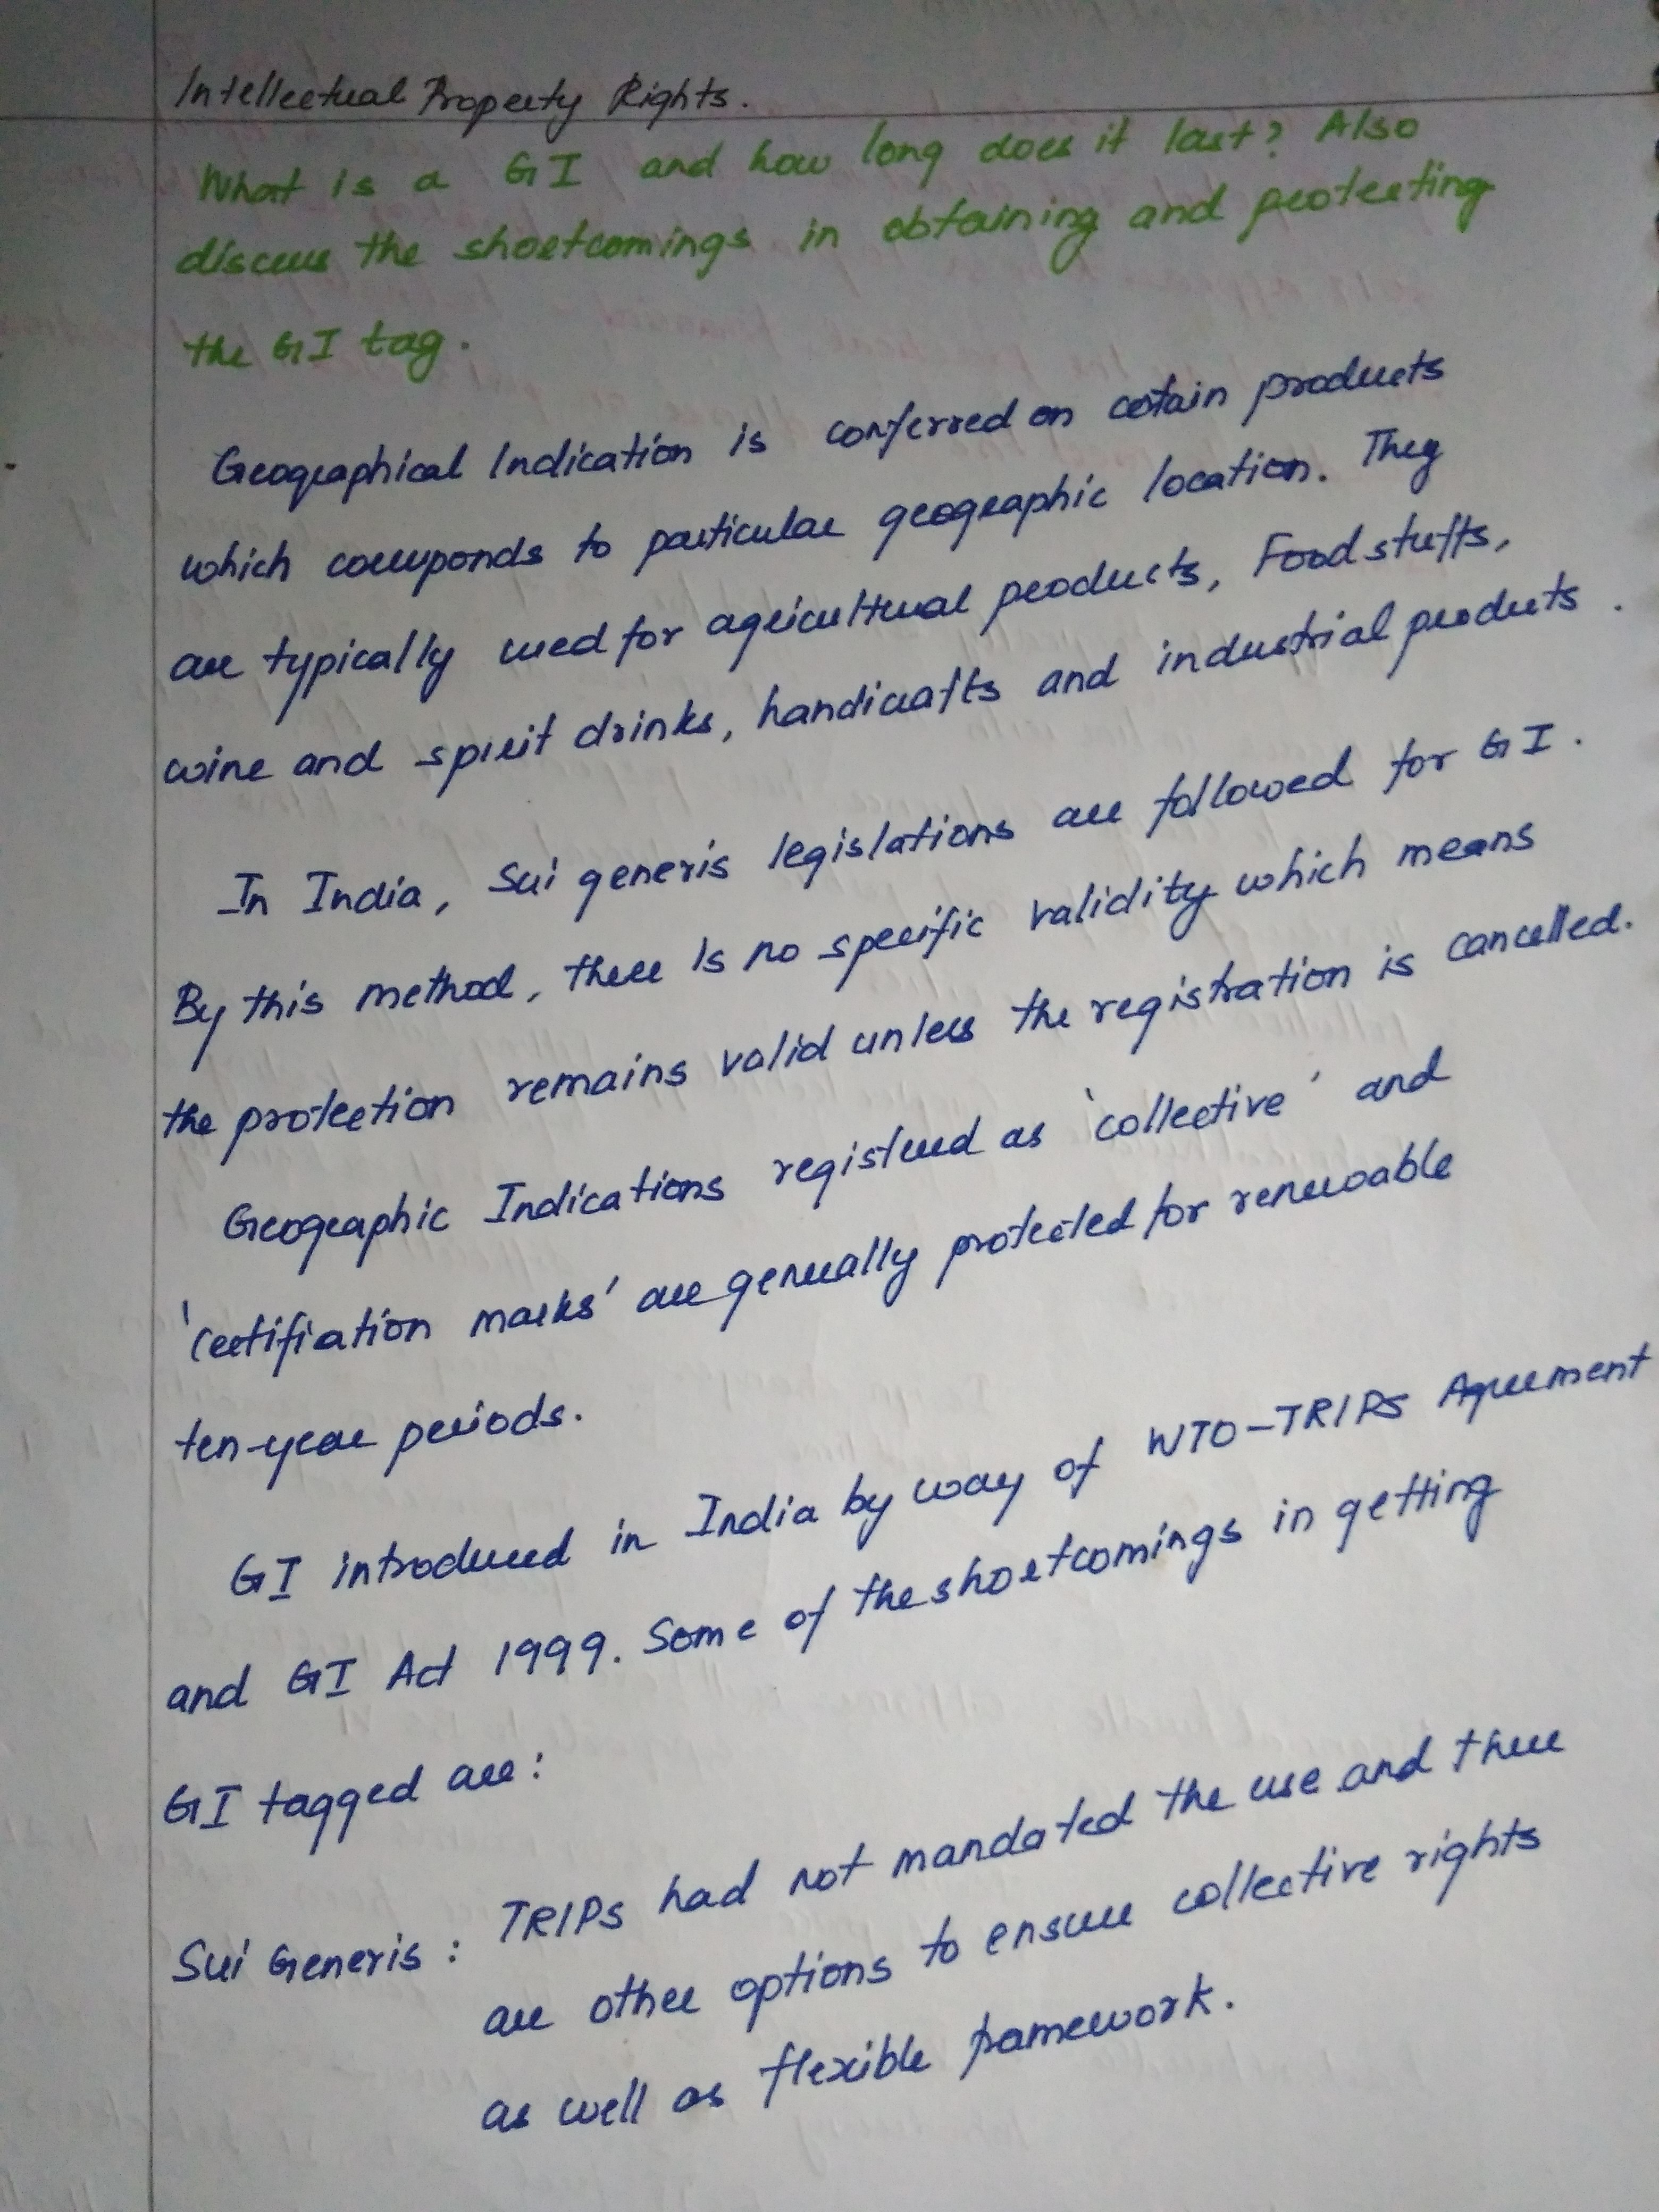 Intellectual Property Rights.
What is a GI and how long does it last? Also
discuss the shortcomings in obtaining and protecting
the GI tag.
Geographical Indication is conferred on certain products
which corresponds to particular geographic location. They
are typically used for agricultural products, Food stuffs,
wine and spirit drinks, handicrafts and industrial products.
In India, Sui generis legislations are followed for GI.
By this method, there is no specific validity which means
the protection remains valid unless the registration is cancelled.
Geographic Indications registered as 'collective' and
'certifiation marks' are generally protected for renewable
ten-year periods.
GI introduced in India by way of WTO-TRIPS Agreement
and GI Act 1999. Some of the shortcomings in getting
GI tagged are:
Sui Generis: TRIPS had not mandated the use and there
are other options to ensure collective rights
as well as flexible framework.